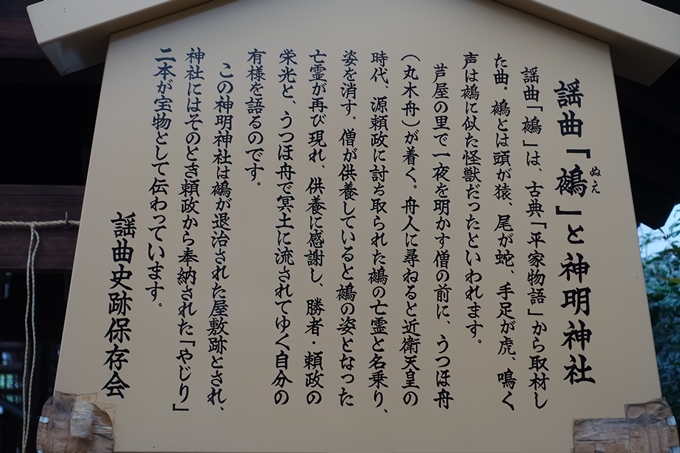 謡曲「鵺」と神明神社
ぬえ
謡曲「鵺」は、古典「平家物語」から取材し
た曲・鵺とは頭が猿、尾が蛇、手足が虎、鳴く
声は鵺に似た怪獣だったといわれます。
芦屋の里で一夜を明かす僧の前に、うつほ舟
(丸木舟)が着く。舟人に尋ねると近衛天皇の
時代、源頼政に討ち取られた鵺の亡霊と名乗り、
姿を消す。僧が供養していると鵺の姿となった
亡霊が再び現れ、供養に感謝し、勝者・頼政の
栄光と、うつほ舟で冥土に流されてゆく自分の
有様を語るのです。
この神明神社は鵺が退治された屋敷跡とされ、
神社にはそのとき頼政から奉納された「やじり」
二本が宝物として伝わっています。
謡曲史跡保存会